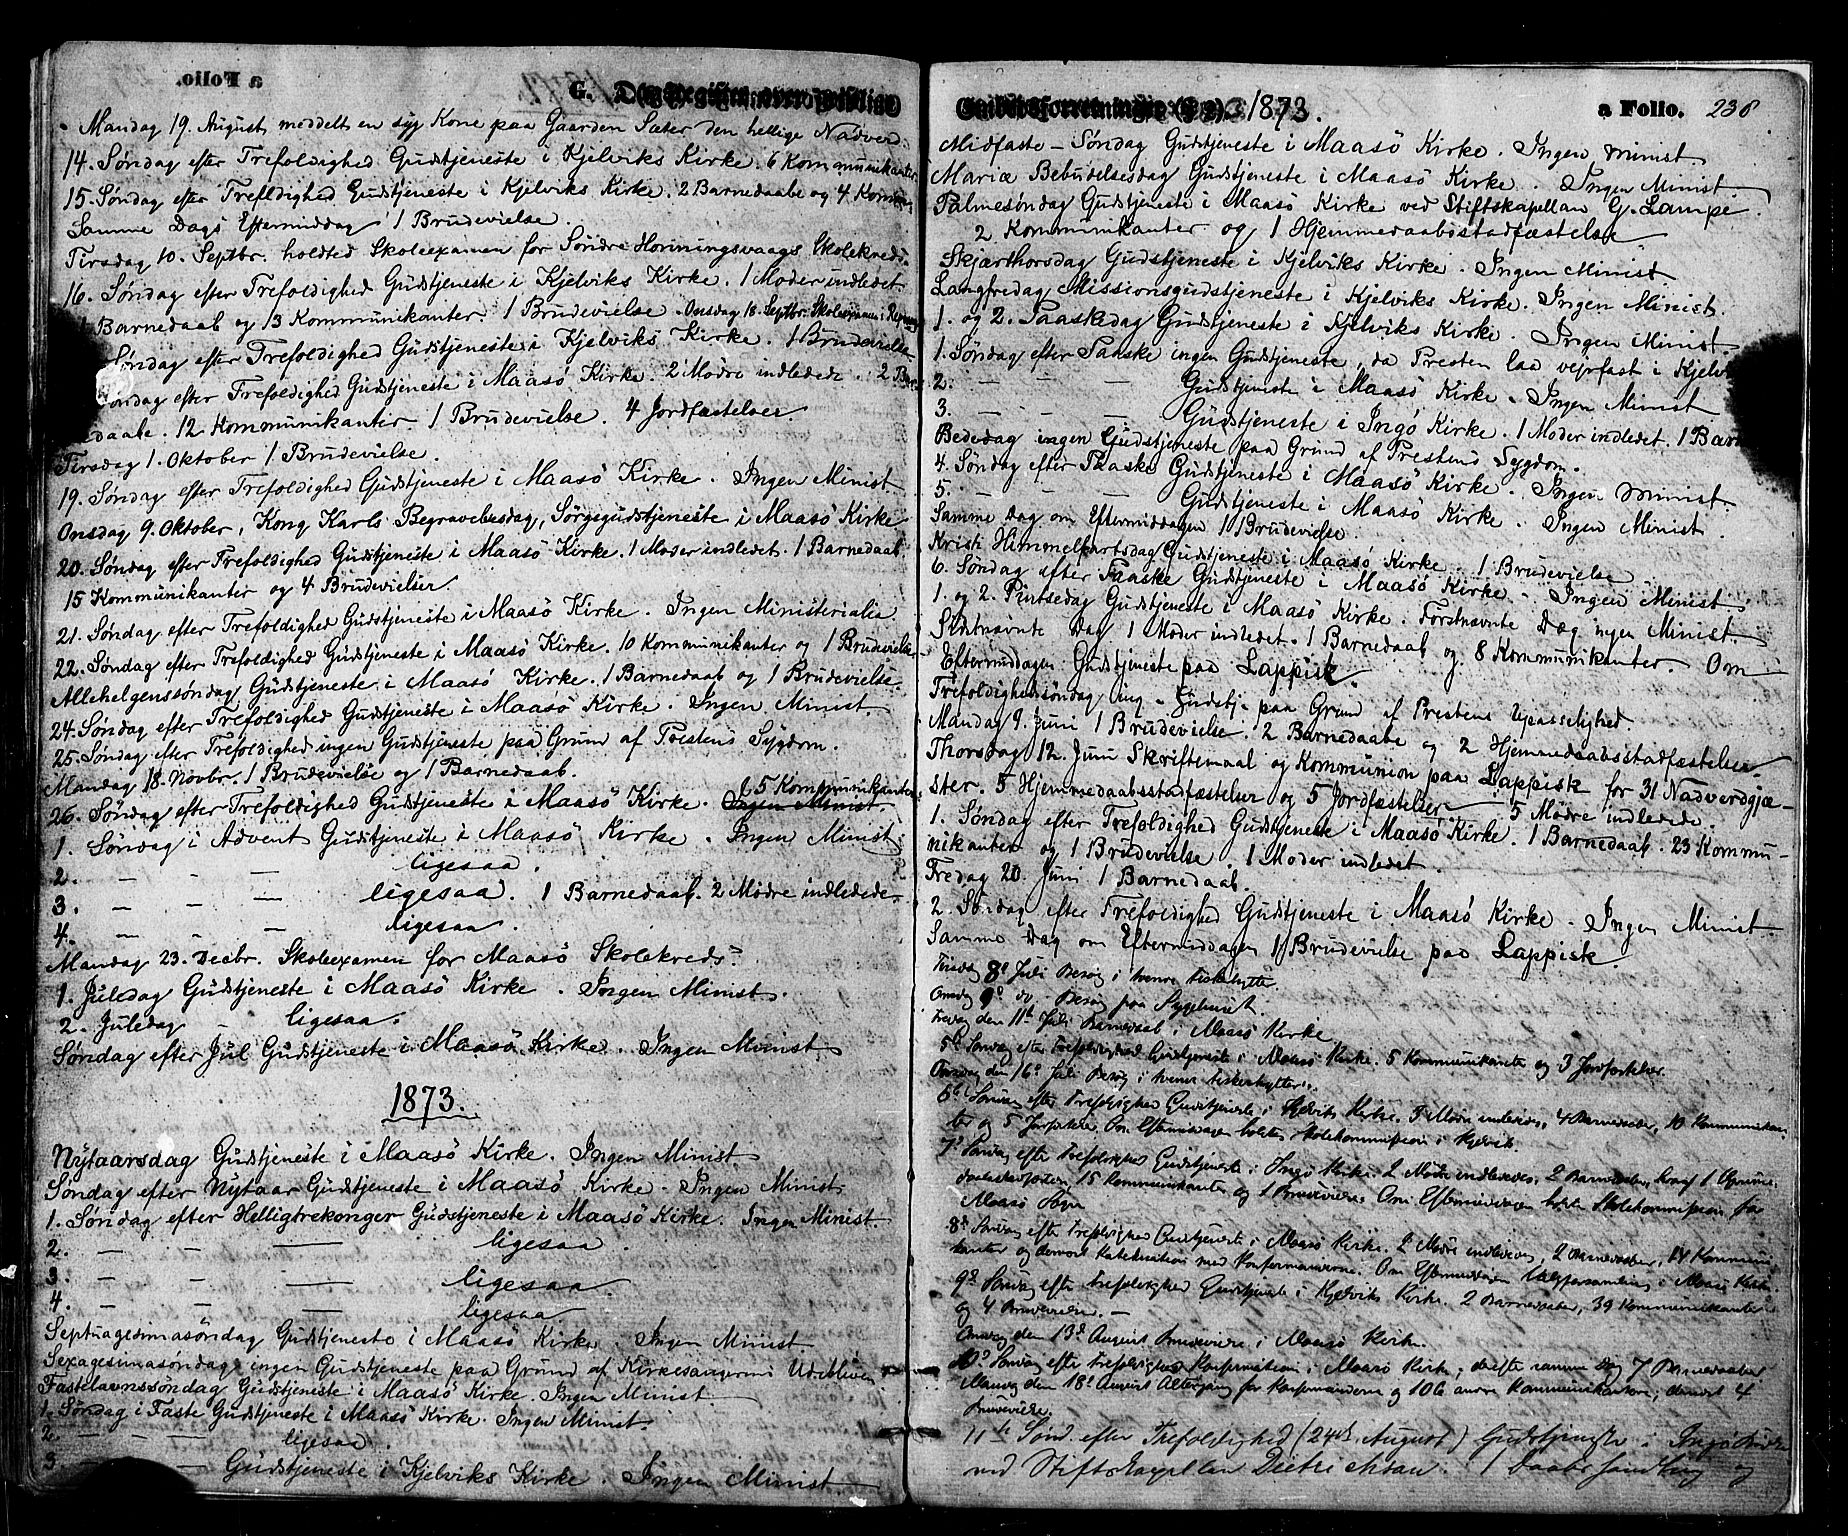 a Folio.
G. Dag-Register over geistlige
Mandag 19. August meddelt en syg Kone paa Gaarden Sæter den hellige Nadver.
14. Søndag efter Trefoldighed Gudstjeneste i Kjelviks Kirke. 6 Kommunikanter
15. Søndag efter Trefldighed Gudstjeneste i Kjelviks Kirke. 2 Barnedaabe og 4 Kommu
Samme Dags Eftermiddag 1 Brudevielse.
Tirsdag 10. Septbr. holdted Skoleexamen for Søndre Honningsvaags Skolekreds.
16. Søndag efter Trefoldighed Gudstjeneste i Kjelviks Kirke. 1 Moder indledet
Barnedaab og 13 Kommunikanter. 1 Brudevielse. Onsdag 18. Septbr. Skoleexamen i
Søndag efter Trefoldighed Gudstjeneste i Kjelviks Kirke. 1 Brudevielse
Søndag efter Trefoldighed Gudstjeneste i Maasö Kirke. 2 Mødre indledede. 2 Bar
edaabe. 12 Kommunikanter 1 Brudevielse. 4 Jordfæstelser
Tirsdag 1. Oktober 1 Brudevielse.
19. Søndag efter Trefoldighed Gudstjeneste i Maasö Kirke. Ingen Minist.
Onsdag 9. Oktober, Kong Karls Begravelsesdag, Sørgegudstjeneste i Maasö Kirke
20. Søndag efter Trefoldighed Gudstjeneste i Maasö Kirke. 1 Moder indledet. 1 Barnedaab
15 Kommunikanter og 4 Brudevielser.
21. Søndag efter Trefoldighed Gudstjeneste i Maasö Kirke. Ingen Ministerialia.
22. Søndag efter Trefoldighed Gudstjeneste i Maasö Kirke. 10 Kommunikanter og 1 Brudevielse
Allehelgenssøndag Gudstjeneste i Maasö Kirke. 1 Barnedaab og 1 Brudevielse.
24. Søndag efter Trefoldighed Gudstjeneste i Maasö Kirke. Ingen Minist.
25. Søndag efter Trefoldighed ingen Gudstjeneste paa Grund af Prestens Sygdom.
Mandag 18. Novbr. 1 Brudevielse og 1 Barnedaab.
26. Søndag efter Trefoldighed Gudstjeneste i Maasö Kirke. Ingen Minist. 5 Kommunikanter
1. Søndag i Advent Gudstjeneste i Maasö Kirke. Ingen Minist
2. — — — ligesaa.
3. — — — ligesaa. 1 Barnedaab. 2 Mødre indledede.
4. — — — ligesaa.
Mandag 23. Decbr. Skoleexamen for Maasö Skolekreds.
1. Juledag Gudstjeneste i Maasö Kirke. Ingen Minist.
2. Juledag ligesaa.
Søndag efter Jul Gudstjeneste i Maasö Kirke. Ingen Minist
1873.
Nytaarsdag Gudstjeneste i Maasö Kirke. Ingen Minist.
Søndag efter Nytaar Gudstjeneste i Maasö Kirke. Ingen Minist.
1. Søndag efter Helligtrekonger Gudstjeneste i Maasö Kirke. Ingen Minist
2. — — — ligesaa.
3. — — — ligesaa.
4. — — — ligesaa
Septuagesimasöndag Gudstjeneste i Maasö Kirke. Ingen Minist
Sexagesimasöndag ingen Gudstjeneste paa Grund af Kirkesangerens Udebliven.
Fastelavnssöndag Gudstjeneste i Maasö Kirke. Ingen Minist.
1. Søndag i Faste Gudstjeneste i Maasö Kirke. Ingen Minist.
2. — — — ligesaa.
3 — — — Gudstjeneste i Kjelviks Kirke. Ingen Minist.
1873.
a Folio. 238
Midfaste-Søndag Gudstjeneste i Maasö Kirke. Ingen Minist
Mariæ Bebudelsesdag Gudstjeneste i Maasö Kirke. Ingen Minist
Palmesøndag Gudstjeneste i Maasö Kirke ved Stiftskapellan G. Lampe.
2 Kommunikanter og 1 Hjemmedaabsstadfæstelse
Skjærthorsdag Gudstjeneste i Kjelviks Kirke. Ingen Minist.
Langfredag Missionsgudstjeneste i Kjelviks Kirke. Ingen Minist.
1. og 2. Paaskedag Gudstjeneste i Kjelviks Kirke. Ingen Minist.
1. Søndag efter Paaske ingen Gudstjeneste, da Presten laa vejrfast i Kjelv
2. — — — Gudstjeneste i Maasö Kirke. Ingen Minist
3. — — — Gudstjeneste i Ingö Kirke. 1 Moder indledet. 1 Barn
Bededag ingen Gudstjeneste paa Grund af Prestens Sygdom.
4. Søndag efter Paaske Gudstjeneste i Maasö Kirke. Ingen Minist.
5. — — — Gudstjeneste i Maasö Kirke. Ingen Minist.
Samme Dag om Eftermiddagen 1 Brudevielse.
Kristi Himmelfartsdag Gudstjeneste i Maasö Kirke. 1 Brudevielse
6. Søndag efter Paaske Gudstjeneste i Maasö Kirke. Ingen Minist
1. og 2. Pintsedag Gudstjeneste i Maasö Kirke. Førstnævnte Dag ingen Minist.
Sidstnævnte Dag 1 Moder indledet. 1 Barnedaab og 8 Kommunikanter. Om
Eftermiddagen Gudstjeneste paa Lappisk.
Trefoldighedssøndag ing. Gudstj. paa Grund af Prestens Upasselighed.
Mandag 9. Juni 1 Brudevielse. 2 Barnedaabe og 2 Hjemmedaabsstadfæstelser.
Thorsdag 12. Juni Skriftemaal og Kommunion paa Lappisk for 31 Nadverdgjæ-
ster. 5 Hjemmedaabsstadfæstelser og 5 Jordfæstelser. 5 Mødre indledede.
1. Søndag efter Trefoldighed Gudstjeneste i Maasö Kirke. 1 Barnedaab. 23 Kommu-
nikanter og 1 Brudevielse. 1 Moder indledet.
Fredag 20. Juni 1 Barnedaab.
2. Søndag efter Trefoldighed Gudstjeneste i Maasö Kirke. Ingen Minist
Samme Dag om Eftermiddagen 1 Brudevielse paa Lappisk.
Tirsdag 8de Juli Besøg i tvende Fiskehytter.
Onsdag 9de do. Besøg paa Sygehuset.
Fredag den 11te Juli Barnedaab i Maasö Kirke
5te Søndag efter Trefoldighed Gudstjeneste i Maasö Kirke. 5 Kommunikanter og 3 Jordfæstelser.
Onsdag den 16de Juli Besøg i tvende Fiskerhytter.
6te Søndag efter Trefoldighed Gudstjeneste i Kjelviks Kirke. 3 Mødre indledede, 4 Barnedaaber, 10 Kommunikan
ter og 5 Jordfæstelser. Om Eftermiddagen holdtes Skolekommission i Kjelvik.
7de Søndag efter Trefoldighed Gudstjeneste i Ingö Kirke. 2 Mødre indlededes, 2 Barnedaaber,
15 Kommunikanter og 1 Brudevielse. Om Eftermiddagen holdtes Skolekommission for
Maasö Sogn
8de Søndag efter Trefoldighed Gudstjeneste i Maasö Kirke. 2 Mødre indlededes, 2 Barnedaaber, 14 Kommuni-
kanter og dernæst Katekisation med Konfirmanderne. Om Eftermiddagen Valgforsamling i Maasö Kirke.
9de Søndag efter Trefoldighed Gudstjeneste i Kjelviks Kirke. 2 Barnedaaber, 39 Kommunikanter
og 4 Brudevielser. —
Onsdag den 13de August Brudevielse i Maasö Kirke.
10de Søndag efter Trefoldighed Konfirmation i Maasö Kirke; derefter samme Dag 7 Barnedaaber
Mandag den 18de August Altergang for Konfirmanderne og 106 andre Kommunikantere; dernæst 4
Brudevielser.
11te Sönd. efter Trefoldighed (24de August) Gudstjeneste i Ingö Kirke
ved Stiftskapellan 1 og